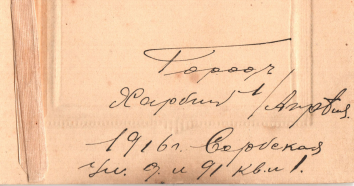 Город
Харбин 1/Апреля
1916 г. Сербская
ул. д. № 91 кв. № 1.